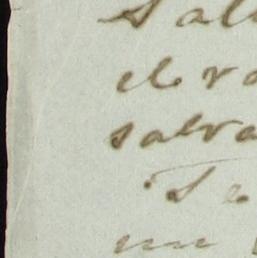 Sal
el va
salva
Se
un